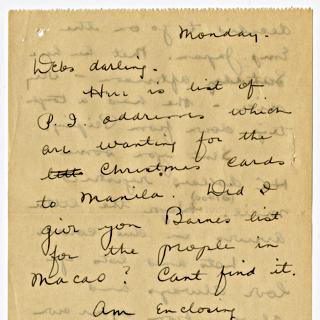 Monday.
Debs darling.
Here is list of
P.I. addresses which
are wanting for the
Christmas cards
to Manila. Did I
give you Barnes list
for the people in
Macao? Cant find it.
Am enclosing